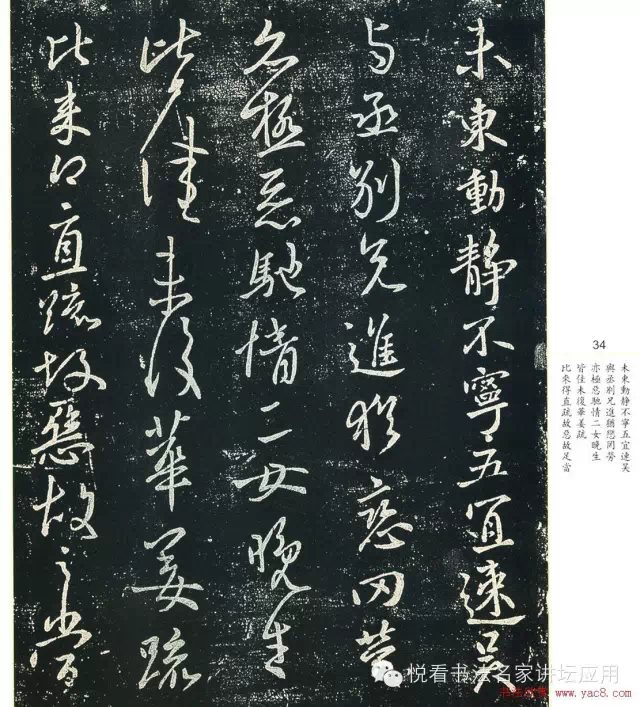 未東動静不寧五宜速吴
與丞别兄進猶戀罔勞
亦極惡馳情二女晚生
皆佳未復華姜疏
比來得直疏故惡故足當
34
未東動静不寧五宜速吴
與丞别兄進猶戀罔勞
亦極惡馳情二女晚生
皆佳未復華姜疏
比來得直疏故惡故足當
悦看书法名家讲坛应用
www.yac8.com